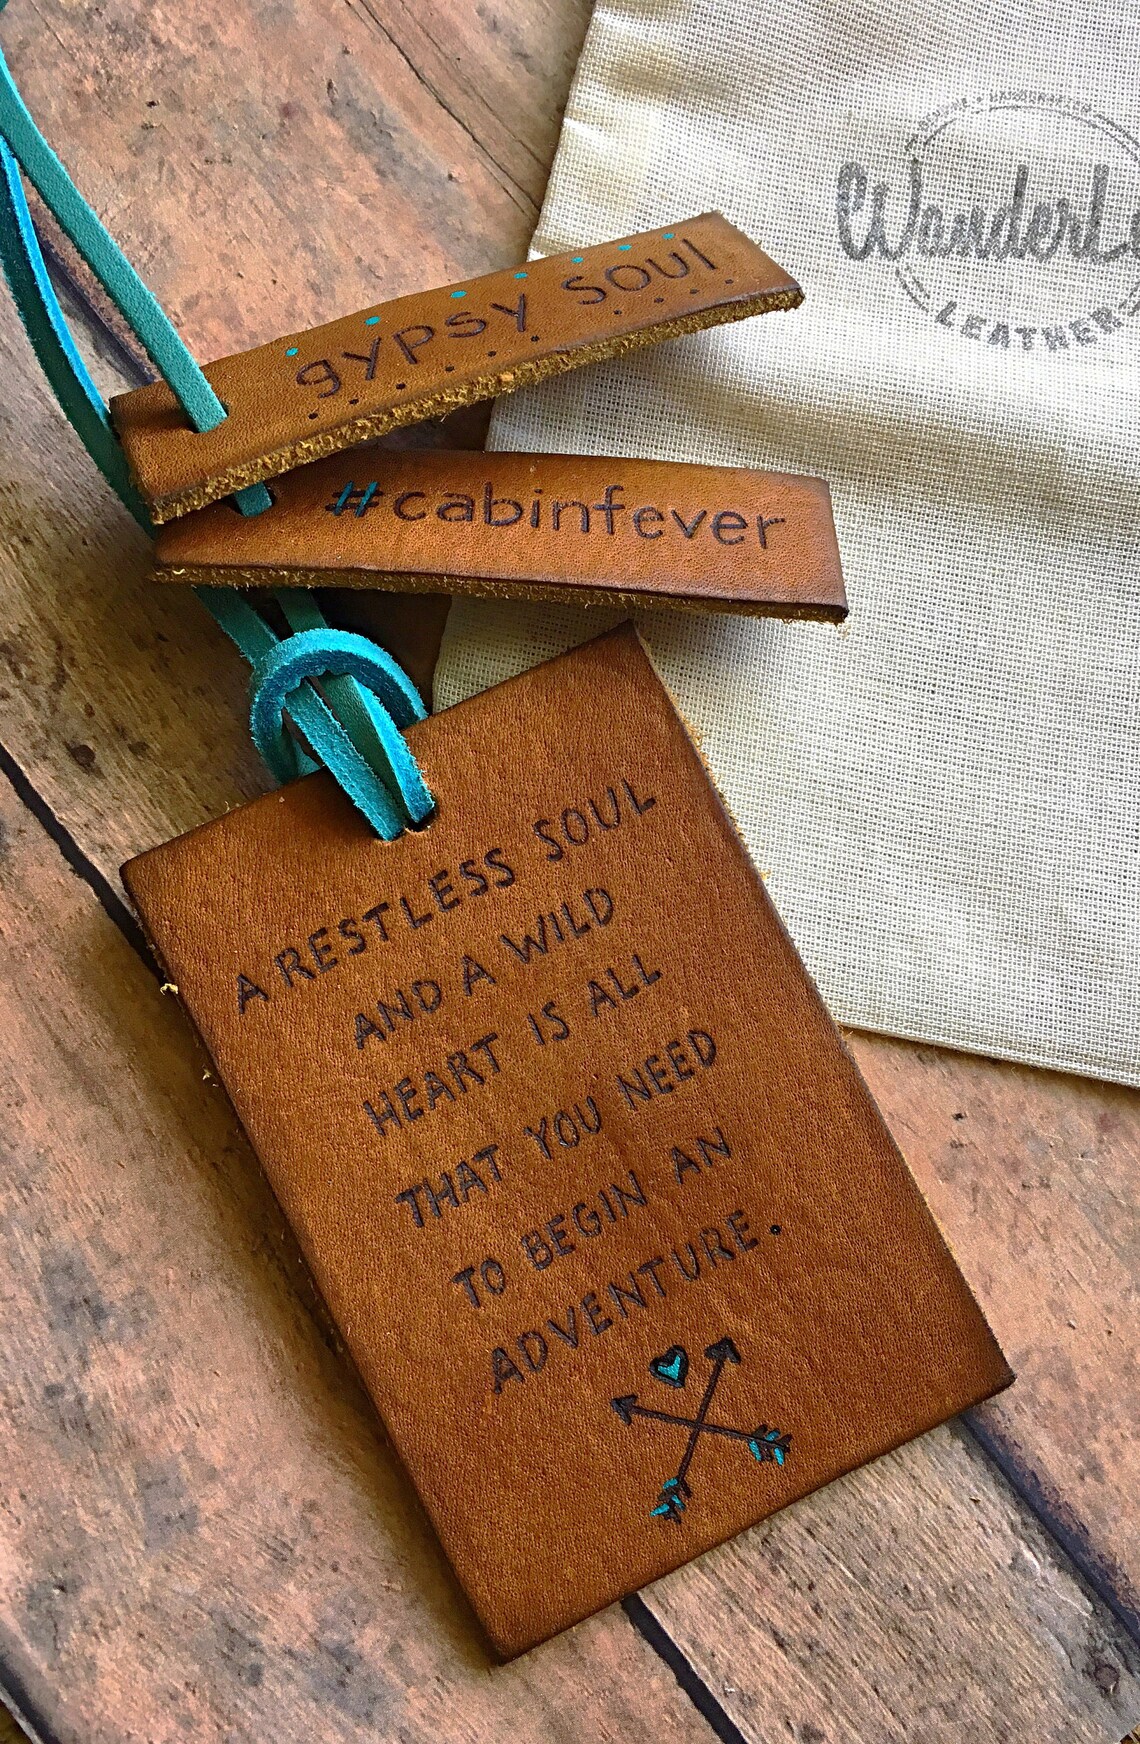 WanderL
LEATHER
gypsy soul
#cabinfever
A RESTLESS SOUL
AND A WILD
HEART IS ALL
THAT YOU NEED
TO BEGIN AN
ADVENTURE.